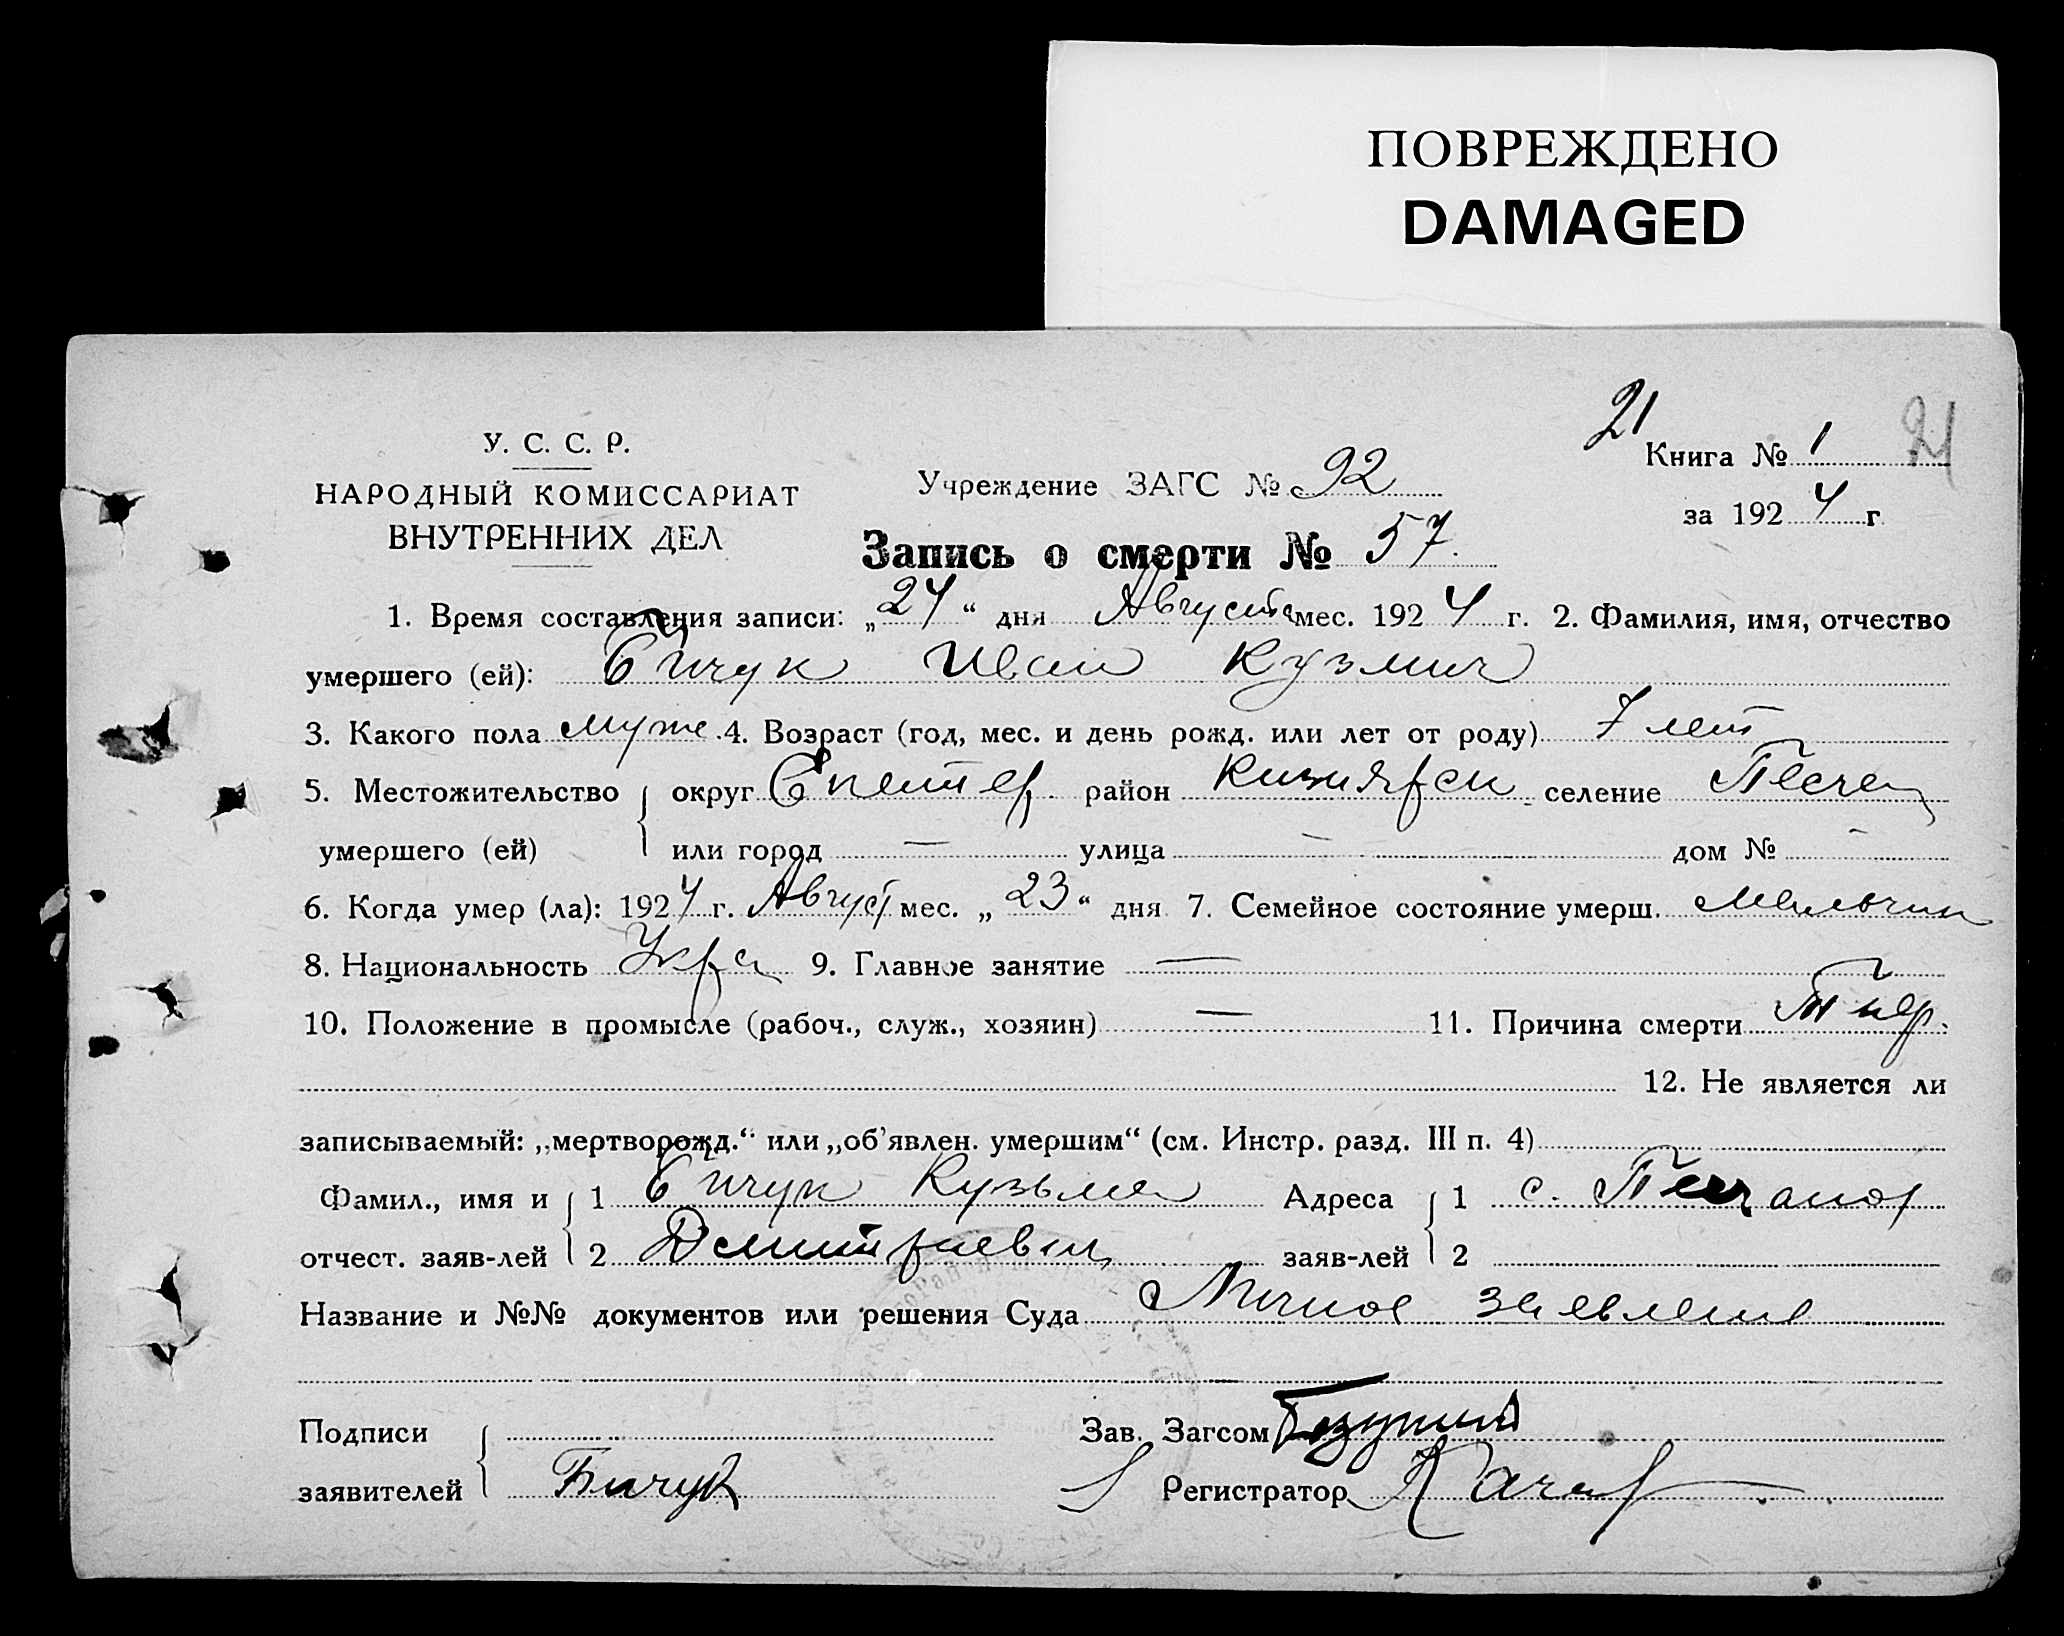 ПОВРЕЖДЕНО
DAMAGED
21
Книга № 1 21
за 1924 г.
У. С. С. Р.
НАРОДНЫЙ КОМИССАРИАТ
ВНУТРЕННИХ ДЕЛ
Учреждение ЗАГС № 92
Запись о смерти № 57.
1. Время составления записи: „24“ дня Августа мес. 1924 г. 2. Фамилия, имя, отчество
умершего (ей): Бичук Иван Кузмич
3. Какого пола муж. 4. Возраст (год, мес. и день рожд. или лет от роду) 7 лет
5. Местожительство округ район селение Песчан
умершего (ей) или город — улица — дом № —
6. Когда умер (ла): 1924 г. Август мес. „23“ дня 7. Семейное состояние умерш. Мальчик
8. Национальность Укра 9. Главное занятие —
10. Положение в промысле (рабоч., служ., хозяин) — 11. Причина смерти
12. Не является ли
записываемый: „мертворожд.“ или „об'явлен. умершим“ (см. Инстр. разд. III п. 4)
Фамил., имя и 1 Бичук Кузьма Адреса 1 с. Песчаной
отчест. заяв-лей 2 Дмитриевич заяв-лей 2
Название и №№ документов или решения Суда Личное заявление
Подписи Зав. Загсом
заявителей Бичук Регистратор